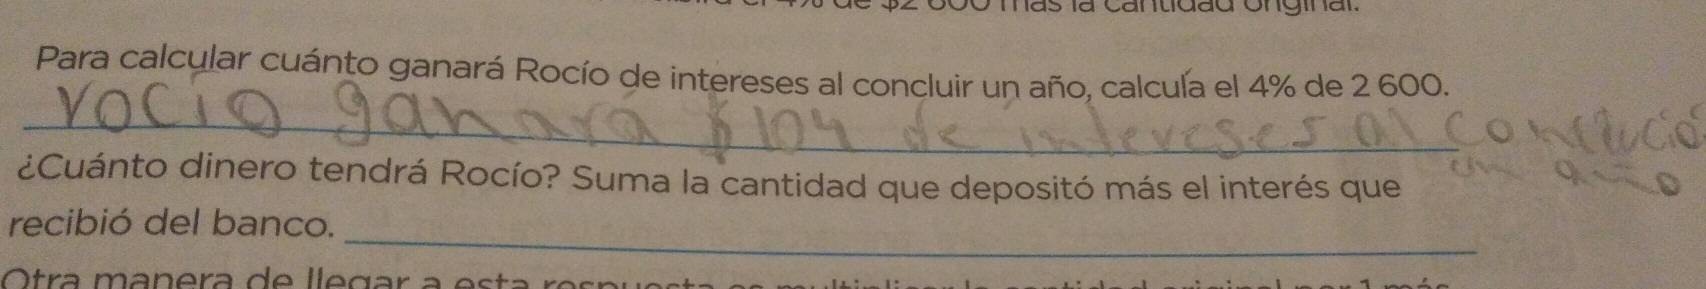 4% de $2 600 más la cantidad original.
Para calcular cuánto ganará Rocío de intereses al concluir un año, calcula el 4% de 2 600.
rocio ganará $104 de intereses al conclucio
un año
¿Cuánto dinero tendrá Rocío? Suma la cantidad que depositó más el interés que
recibió del banco.
Otra manera de llegar a esta respuesta es multiplicar la cantidad original por 1 más